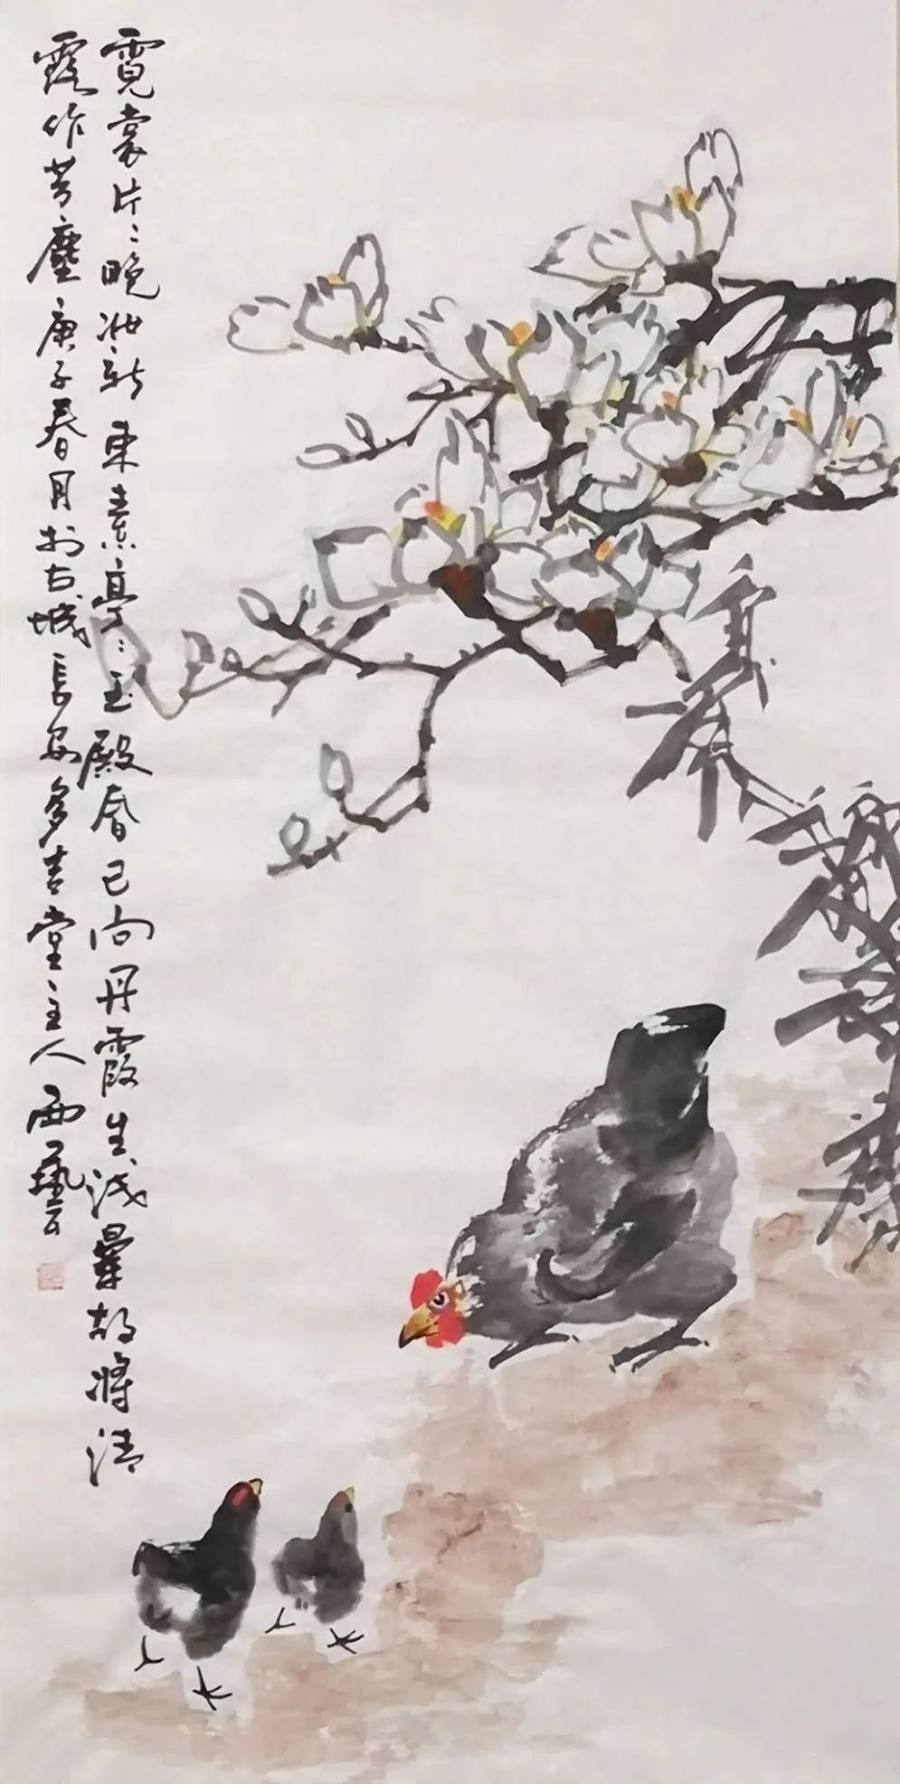 霓裳片〻晚妆新束素亭〻玉殿春已向丹霞生浅晕故将清
露作芳塵庚子春月於古城長安多吉堂主人西藝